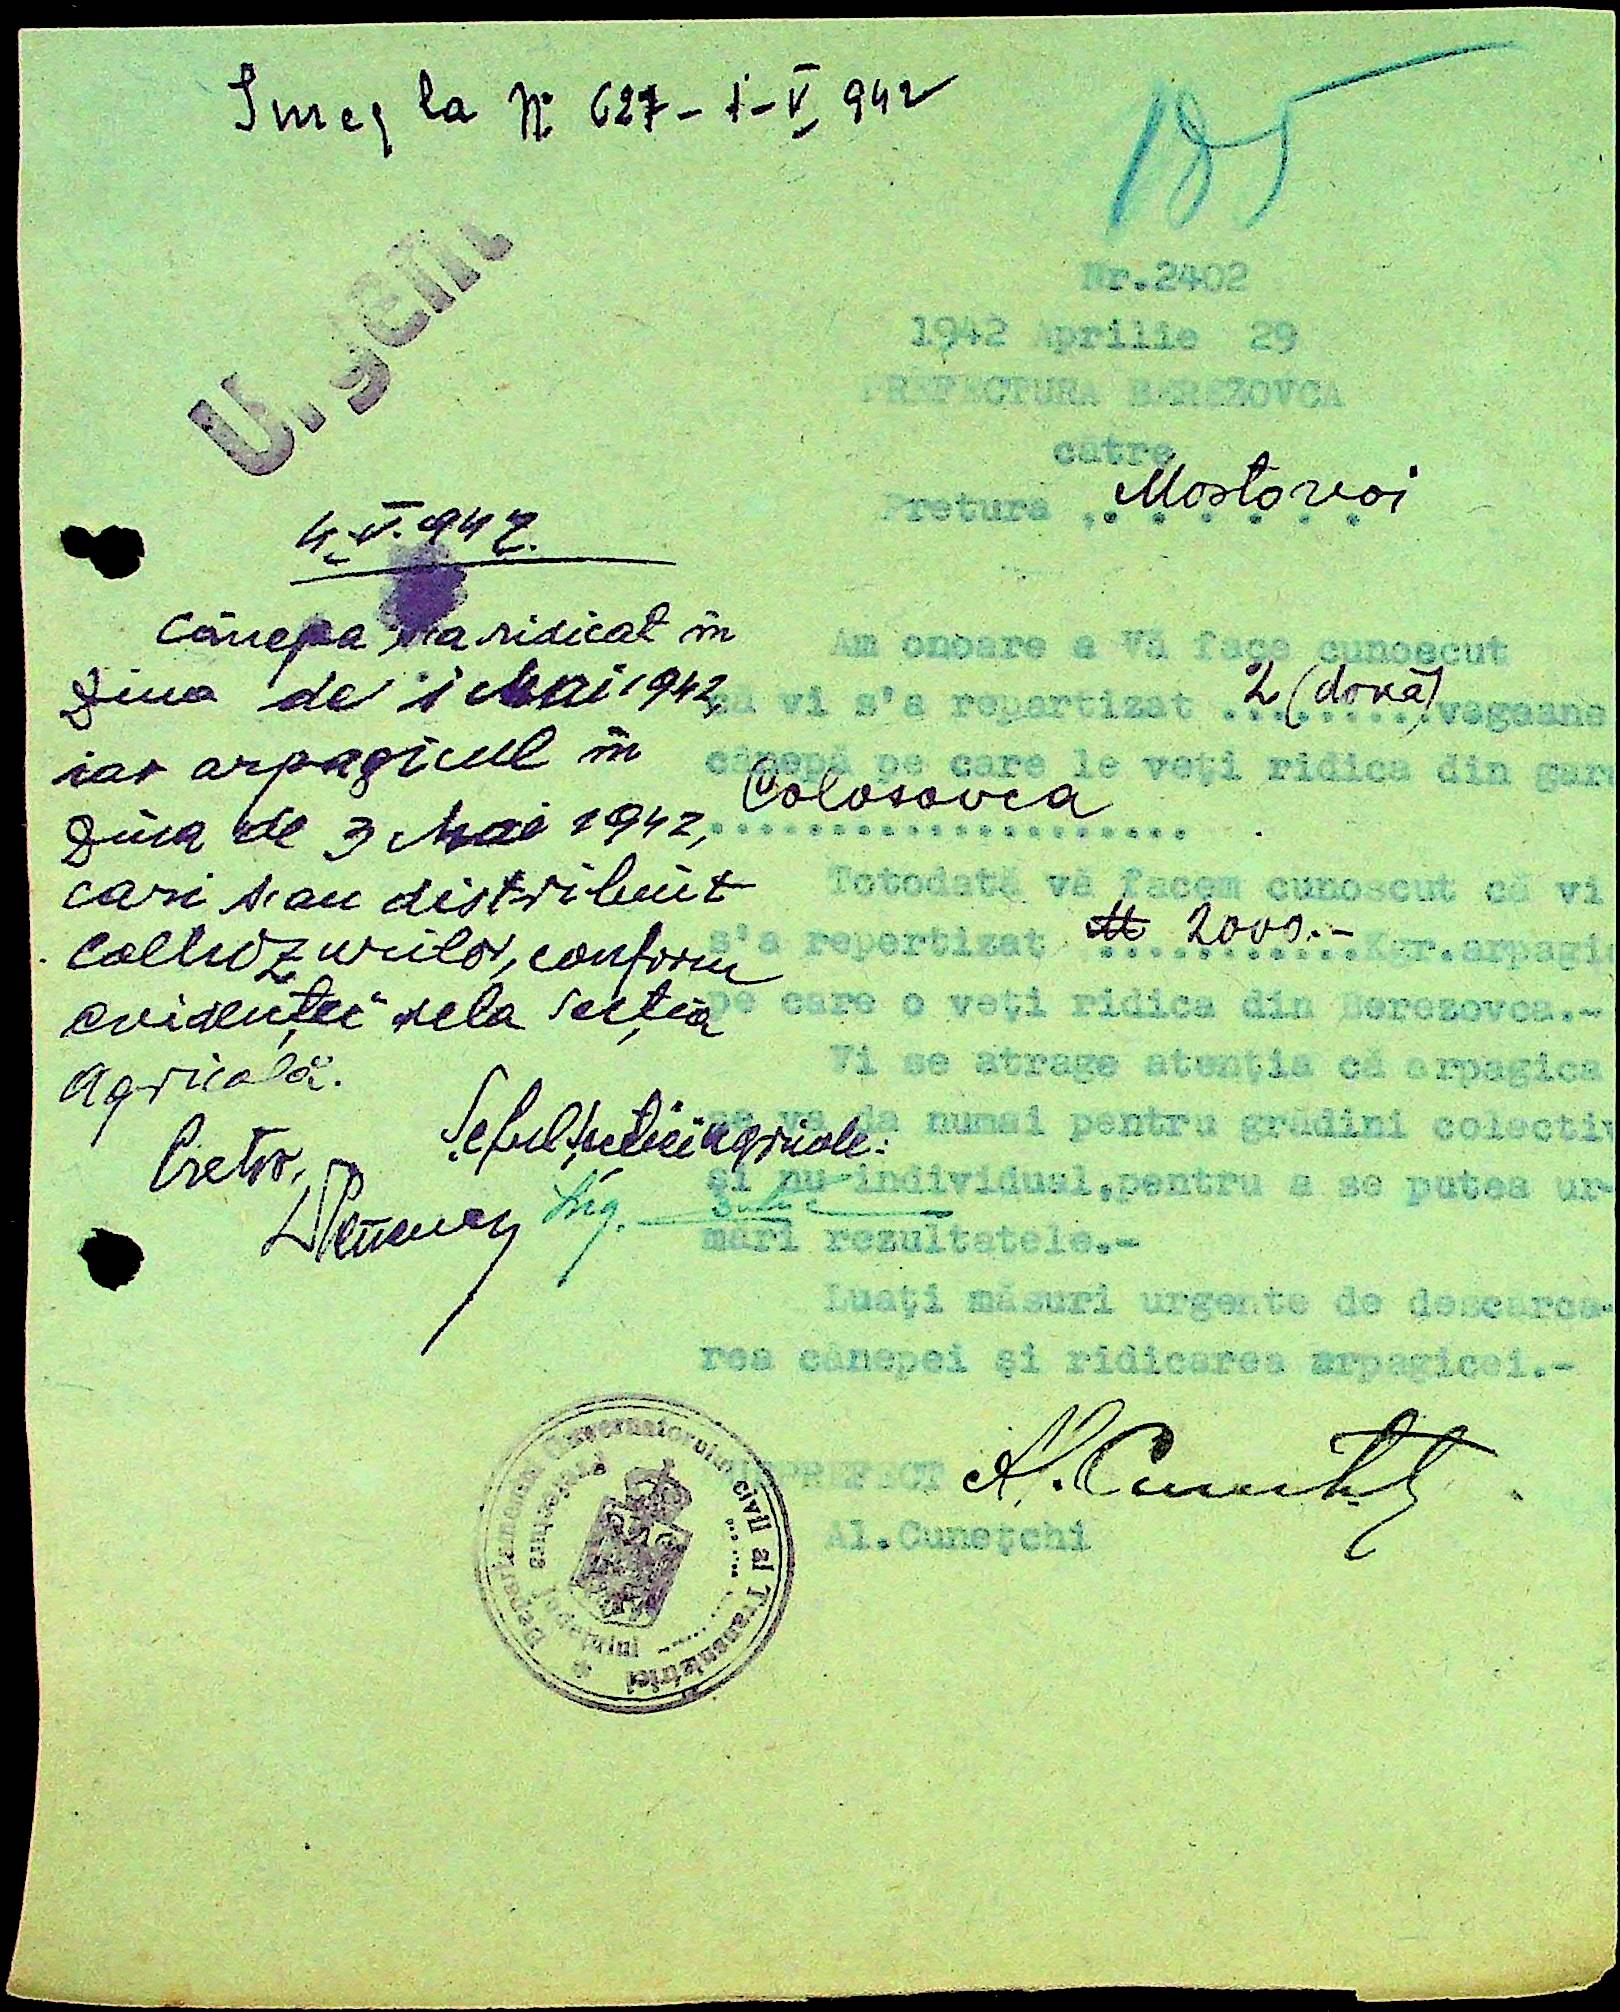 Inreg la Nº 627 - 1 - V 942
185
Urgent
Nr.2402
1942 Aprilie 29
PREFECTURA BEREZOVCA
catre
Pretura Mostovoi
4.V.942.
Cânepa s'a ridicat în
ziua de 1 Mai 1942,
iar arpagicul în
ziua de 3 Mai 1942,
cari s'au distribuit
colhozurilor, conform
evidenței dela secția
agricolă.
Pretor,
Șeful Secției agricole:
Ing.
Am onoare a Vă face cunoscut
că vi s'a repartizat 2 (două) vagoane
cânepă pe care le veți ridica din gara
Colosovca
Totodată vă facem cunoscut că vi
s'a repartizat 2000.- Kgr.arpagic
pe care o veți ridica din Berezovca.-
Vi se atrage atenția că arpagica
se va da numai pentru grădini colectiv
și nu individual,pentru a se putea ur-
mări rezultatele.-
Luați măsuri urgente de descarca-
rea cânepei și ridicarea arpagicei.-
SUBPREFECT
Al.Cunețchi
Departamentul Guvernatorului civil al Transnistriei
Prefectura Județului